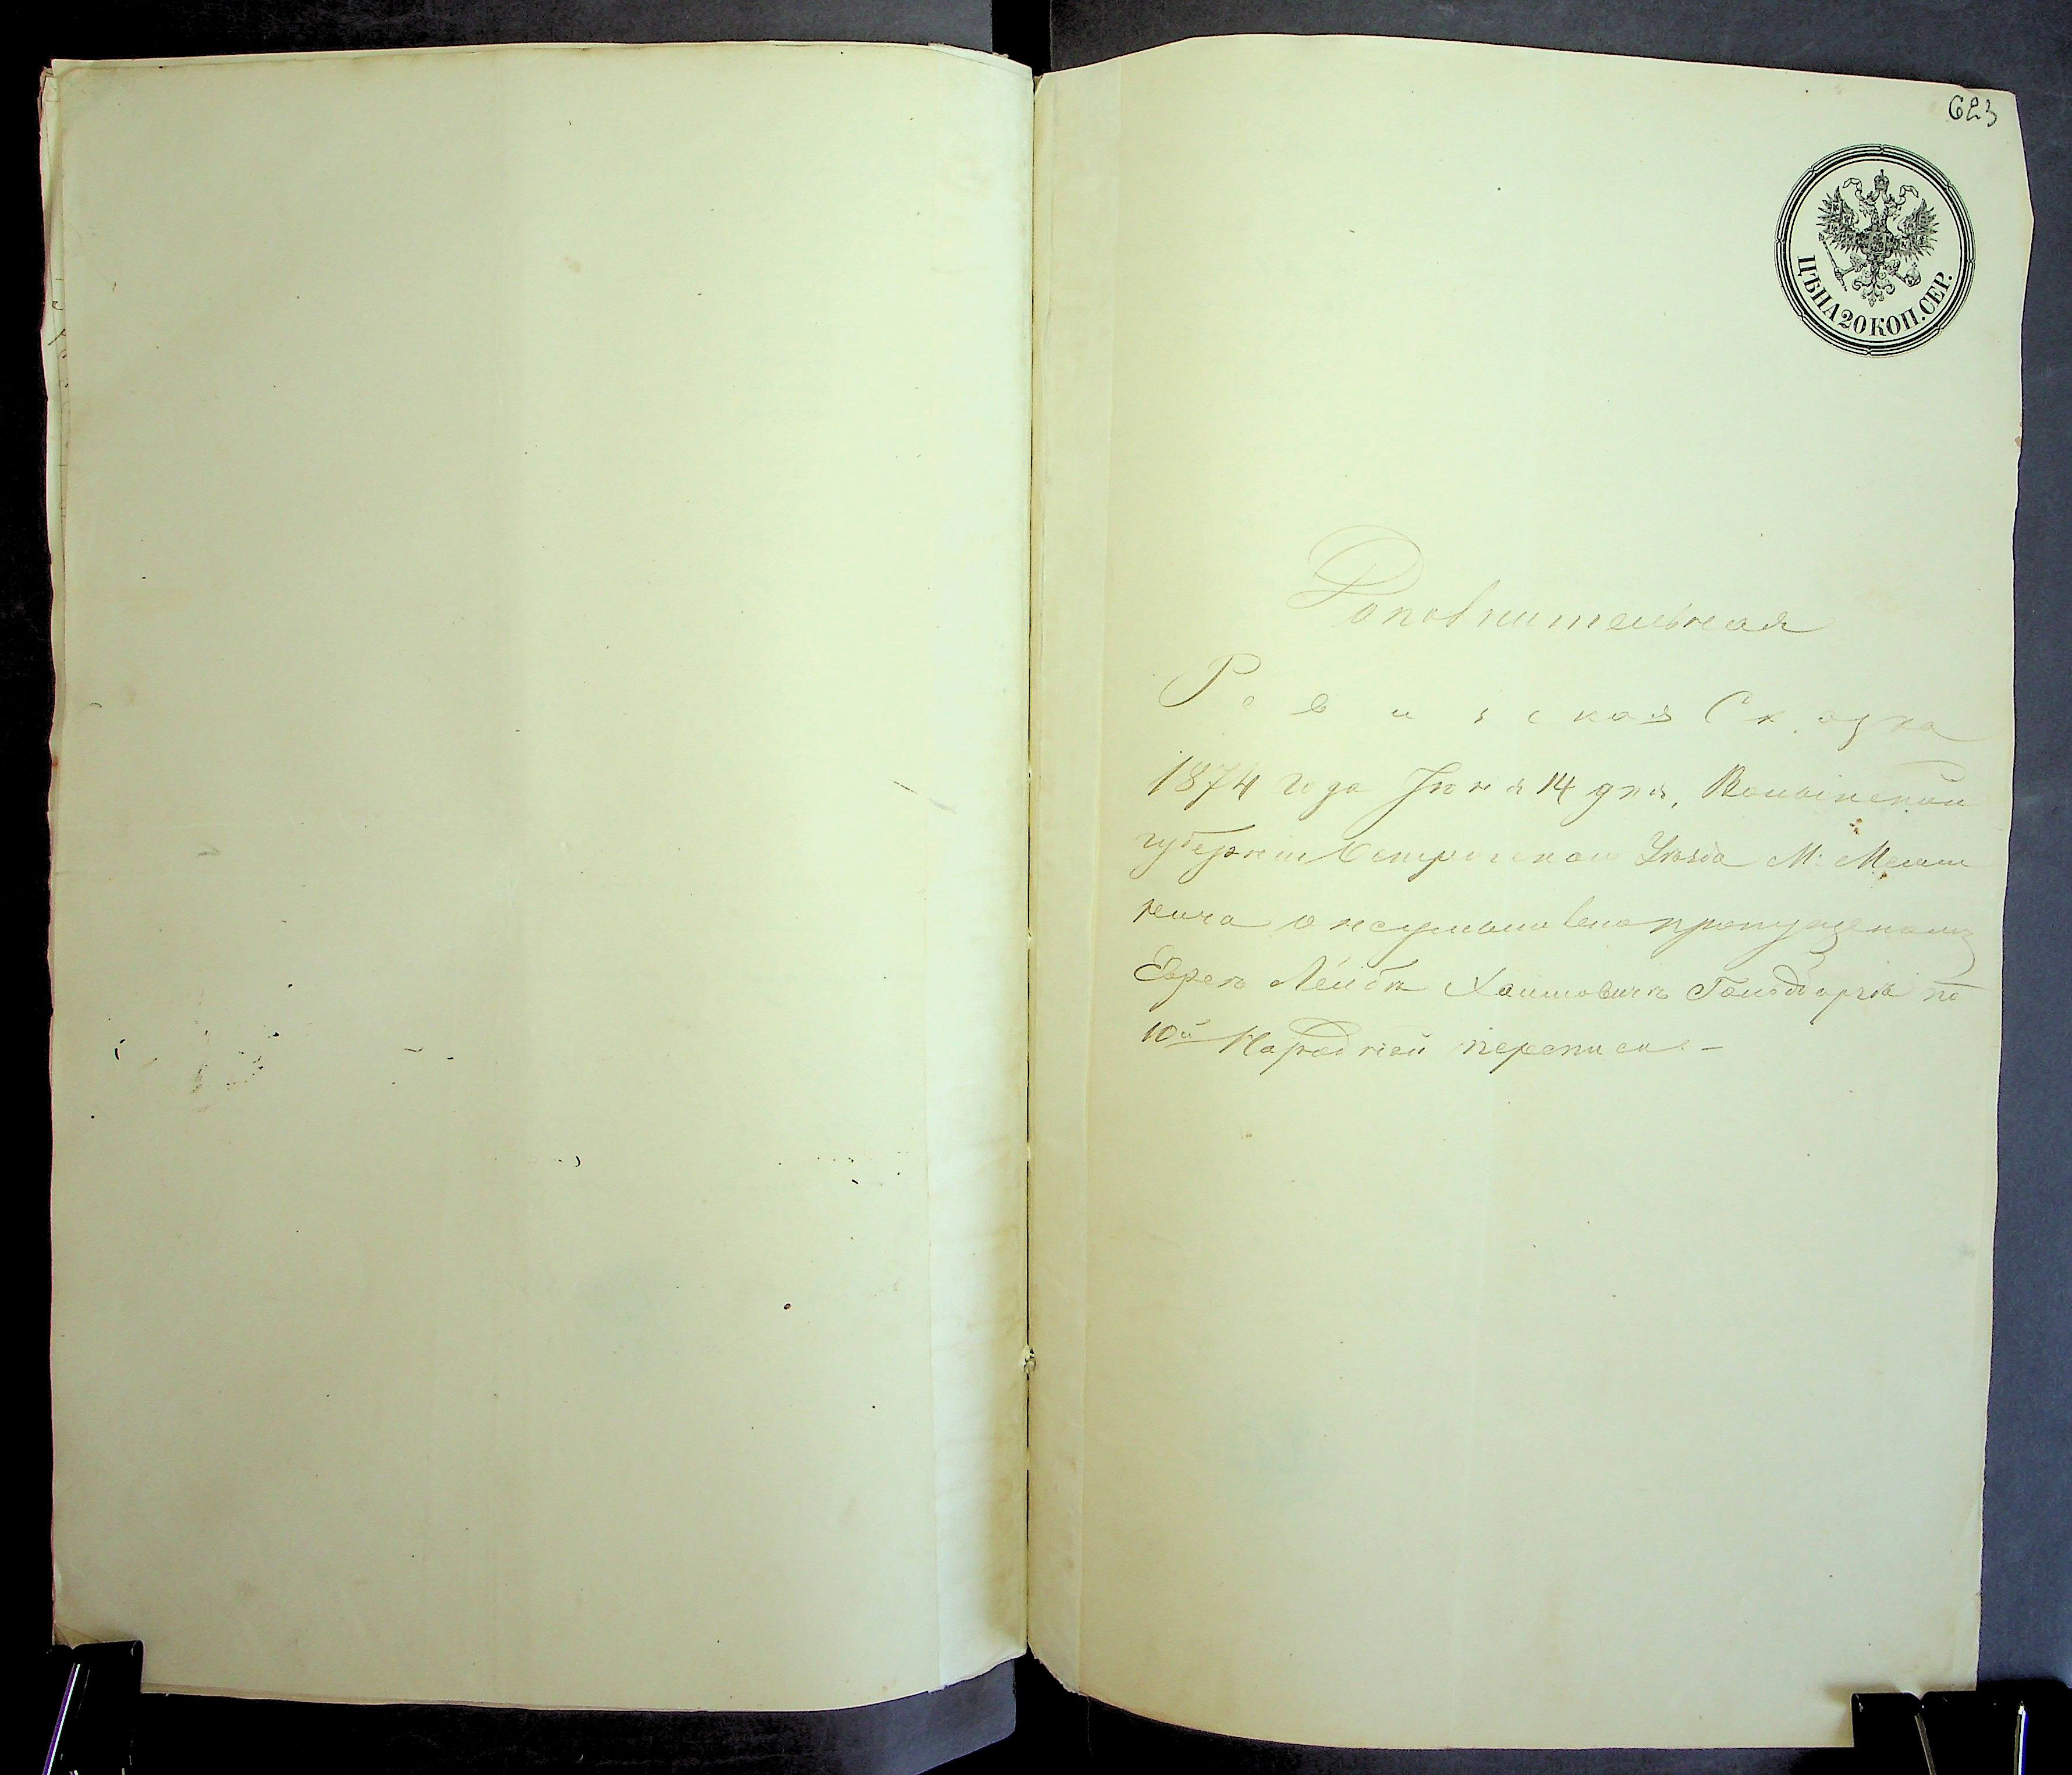 623
ЦѢНА 20 КОП. СЕР.
Дополнительная
Ревизская Сказка
1874 года Іюня 14 дня, Волынской
губерніи Острогскаго Уѣзда М:
о пропущеномъ
Евреѣ Лейбѣ Хаимовичѣ по
10й Народней переписи